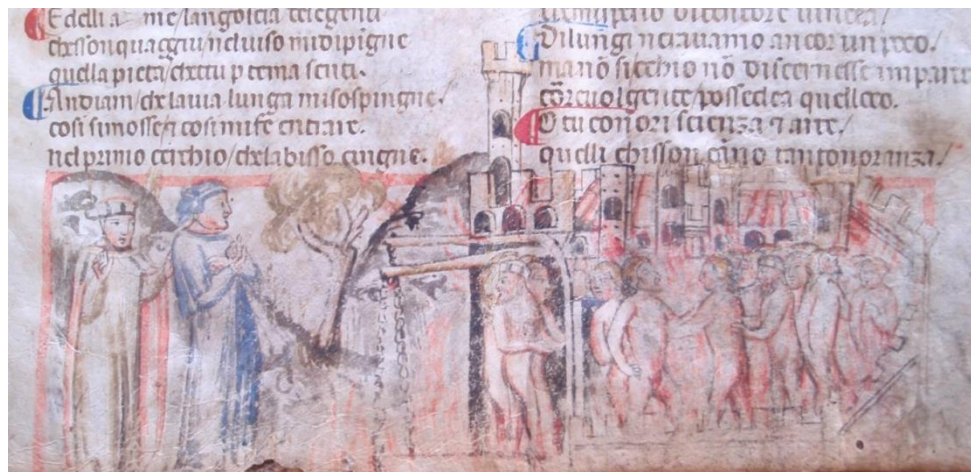 Edelli a me langoscia delegenti
chessonquaggiu/neluiso midipigne
quella pieta/chettu p tema senti.
Andiam/chelauia lunga misospingne/
cosi simosse/7 cosi mife entrare.
nelprimo cerchio/chelabisso cingne.
Dilungi neravamo ancor un poco./
ma nō sicchio nō discernesse imparte
gente/possedea
O tu con ori scienza 7 arte/
quelli chisson tantonoranza/